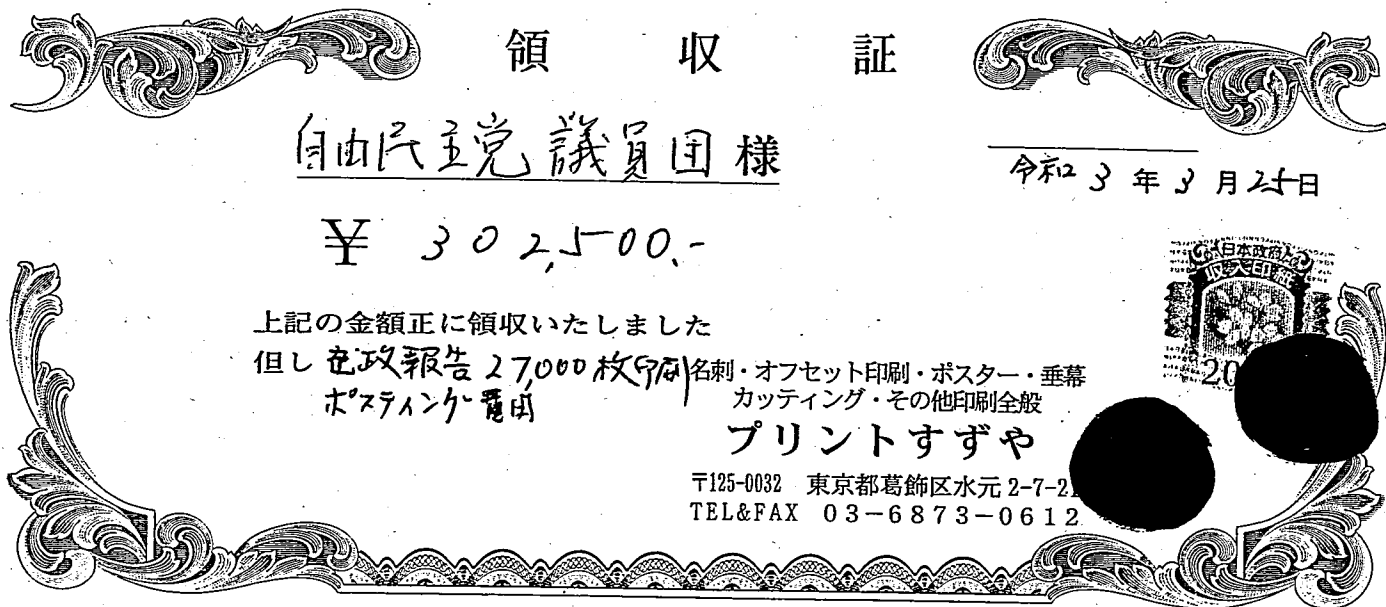 領収証
自由民主党 議員団 様
令和 3 年 3 月 25 日
¥ 302,500.-
日本政府
収入印紙
20
上記の金額正に領収いたしました
但し 区政報告 27,000枚印刷
ポスティング費用
名刺・オフセット印刷・ポスター・垂幕
カッティング・その他印刷全般
プリントすずや
〒125-0032 東京都葛飾区水元 2-7-21
TEL&FAX 03-6873-0612